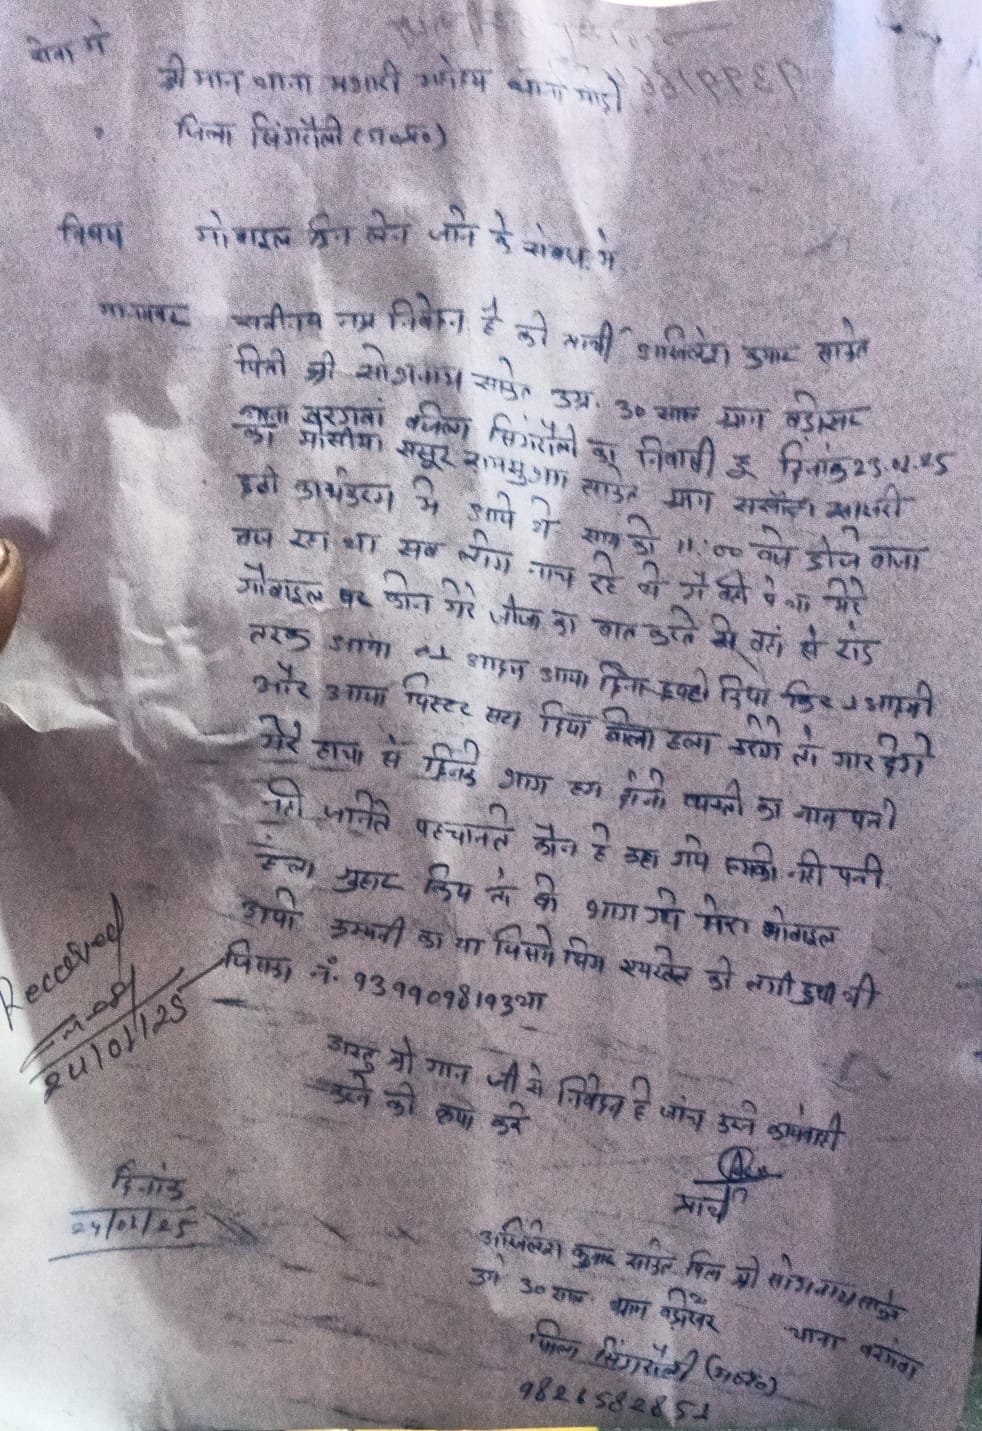 सेवा मे
श्री मान थाना प्रभारी महोदय थाना माड़ो
जिला सिंगरौली (म०प्र०)
विषय मोबाइल छिन लेने जाने के संबध मे
मान्यवर सवीनय नम्र निवेदन है की प्रार्थी अखिलेश कुमार साकेत
पिता श्री सोभनाथ साकेत उम्र. 30 साल ग्राम बड़ोखर
थाना बरगवां जिला सिंगरौली का निवासी हू दिनांक 23.01.25
को मौसीया ससूर रामसुभग साकेत ग्राम
कार्यक्रम मे आये थे साम को 11:00 बजे डीजे बाजा
बज रहा था सब लोग नाच रहे थे मै मेरे
मोबाइल पर फोन मेरे का बात करते हुए वहां से रोड
तरफ आया आया दिया फिर आदमी
और आया पिस्टर सटा दिया बोला हला करोगे तो मार देगे
मेरे हाथो से छिनके भाग हम दोनो व्यक्ती का नाम पती
नही जानते पहचानते कौन है कहा गये हमको नही पती
हला गुहार किये तो वे भाग गये मेरा मोबाइल
ओपो कम्पनी का था जिसमे सिम एयरटेल की लगी हुयी थी
जिसका नं. 9399098193 था
अतह श्री मान जी से निवेदन है जांच करने कार्यवाही
करने की कृपा करे
Received
24/01/25
दिनांक
24/01/25
प्रार्थी
अखिलेश कुमार साकेत पिता श्री सोभनाथ साकेत
उम्र 30 साल ग्राम बड़ोखर थाना बरगवा
जिला सिंगरौली (म०प्र०)
9826582851